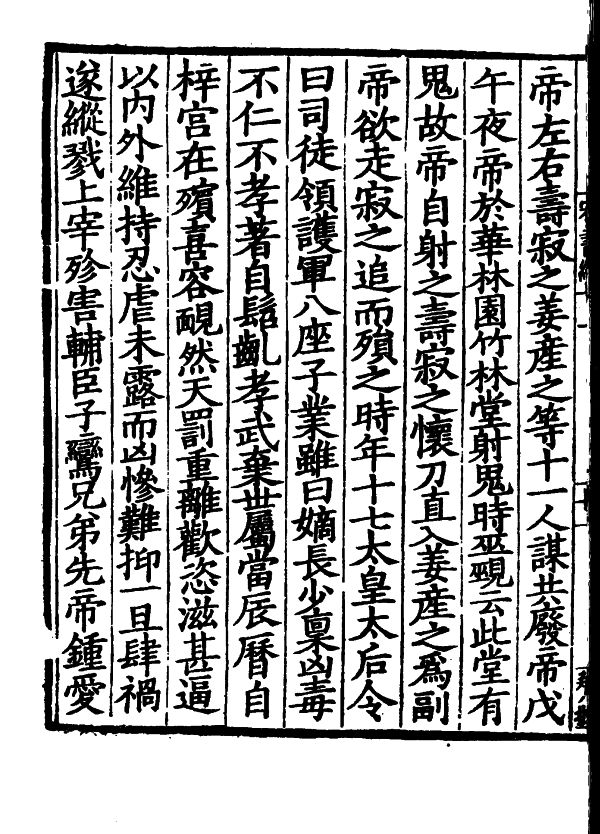 帝左右壽寂之姜産之等十一人謀共廢帝戊
午夜帝於華林園竹林堂射鬼時巫覡云此堂有
鬼故帝自射之壽寂之懷刀直入姜産之爲副
帝欲走寂之追而殞之時年十七太皇太后令
曰司徒領護軍八座子業雖曰嫡長少稟凶毒
不仁不孝著自髫齓孝武棄世屬當辰曆自
梓宮在殯喜容靦然天罰重離歡恣滋甚逼
以內外維持忍虐未露而凶慘難抑一旦肆禍
遂縱戮上宰殄害輔臣子鸞兄弟先帝鍾愛